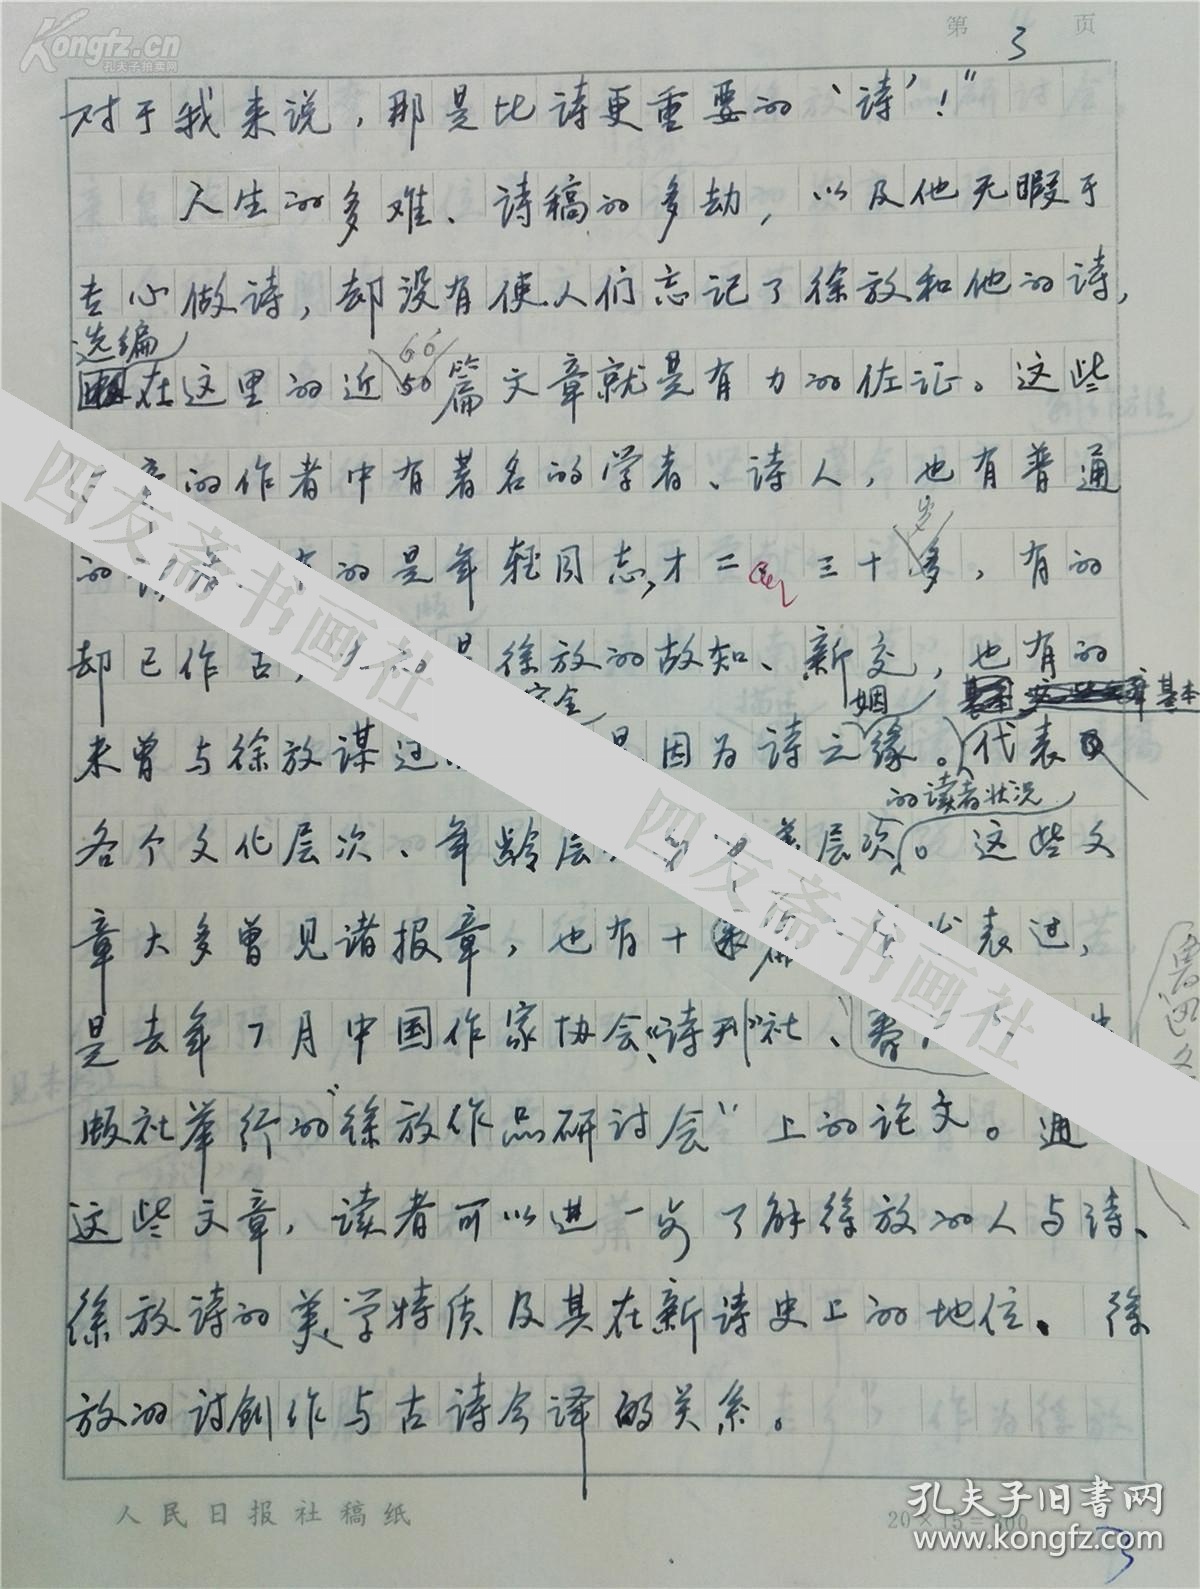 Kongfz.cn
孔夫子拍卖网
第 3 页
对于我来说，那是比诗更重要的‘诗’！”
人生的多难、诗稿的多劫，以及他无暇于
专心做诗，却没有使人们忘记了徐放和他的诗，
选编
在这里的近 60
50 篇文章就是有力的佐证。这些
章的作者中有著名的学者、诗人，也有普通
岁
的 的是年轻同志，才二 三十多，有的
却已作古， 是徐放的故知、新交，也有的
完全 姻 基本
未曾与徐放谋过 是因为诗之缘。代表
的读者状况
各个文化层次、年龄层 层次。这些文
章大多曾见诸报章，也有十 篇 发表过，
是去年7月中国作家协会《诗刊》社、春
版社举行的“徐放作品研讨会”上的论文。通
这些文章，读者可以进一步了解徐放的人与诗、
徐放诗的美学特质及其在新诗史上的地位、徐
放的诗创作与古诗今译的关系。
四友斋书画社
四友斋书画社
人民日报社稿纸
20×15=300
孔夫子旧书网
www.kongfz.com
3